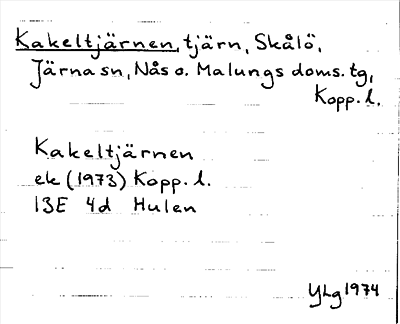 Kakeltjärnen, tjärn, Skålö,
Järna sn, Nås o. Malungs doms. tg,
Kopp. l.
Kakeltjärnen
ek (1973) Kopp. l.
13E 4d Hulen
YLg 1974